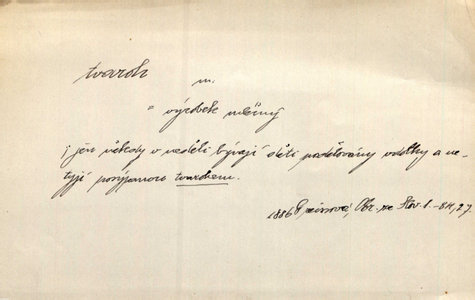 tvaroh m.
= výrobek mléčný
; jen někdy v neděli bývají děti podělovány vdolky a ne-
posýpanou tvarohem.
1886 Obr. ze Slov. 1.-811,27.